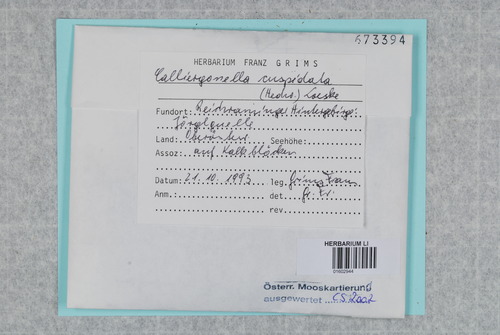 673394
HERBARIUM FRANZ GRIMS
Calliergonella cuspidata
(Hedw.) Loeske
Fundort: Reichraminger Hintergebirge:
Jörglquelle
Land: Oberösterr. Seehöhe:
Assoz: auf Kalkblöcken
Datum: 21.10.1993 leg. Grims Franz
Anm.: det. Gr. Fr.
rev.
HERBARIUM LI
Österr. Mooskartierung
ausgewertet